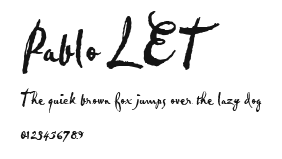 Pablo LET
The quick brown fox jumps over the lazy dog
0123456789